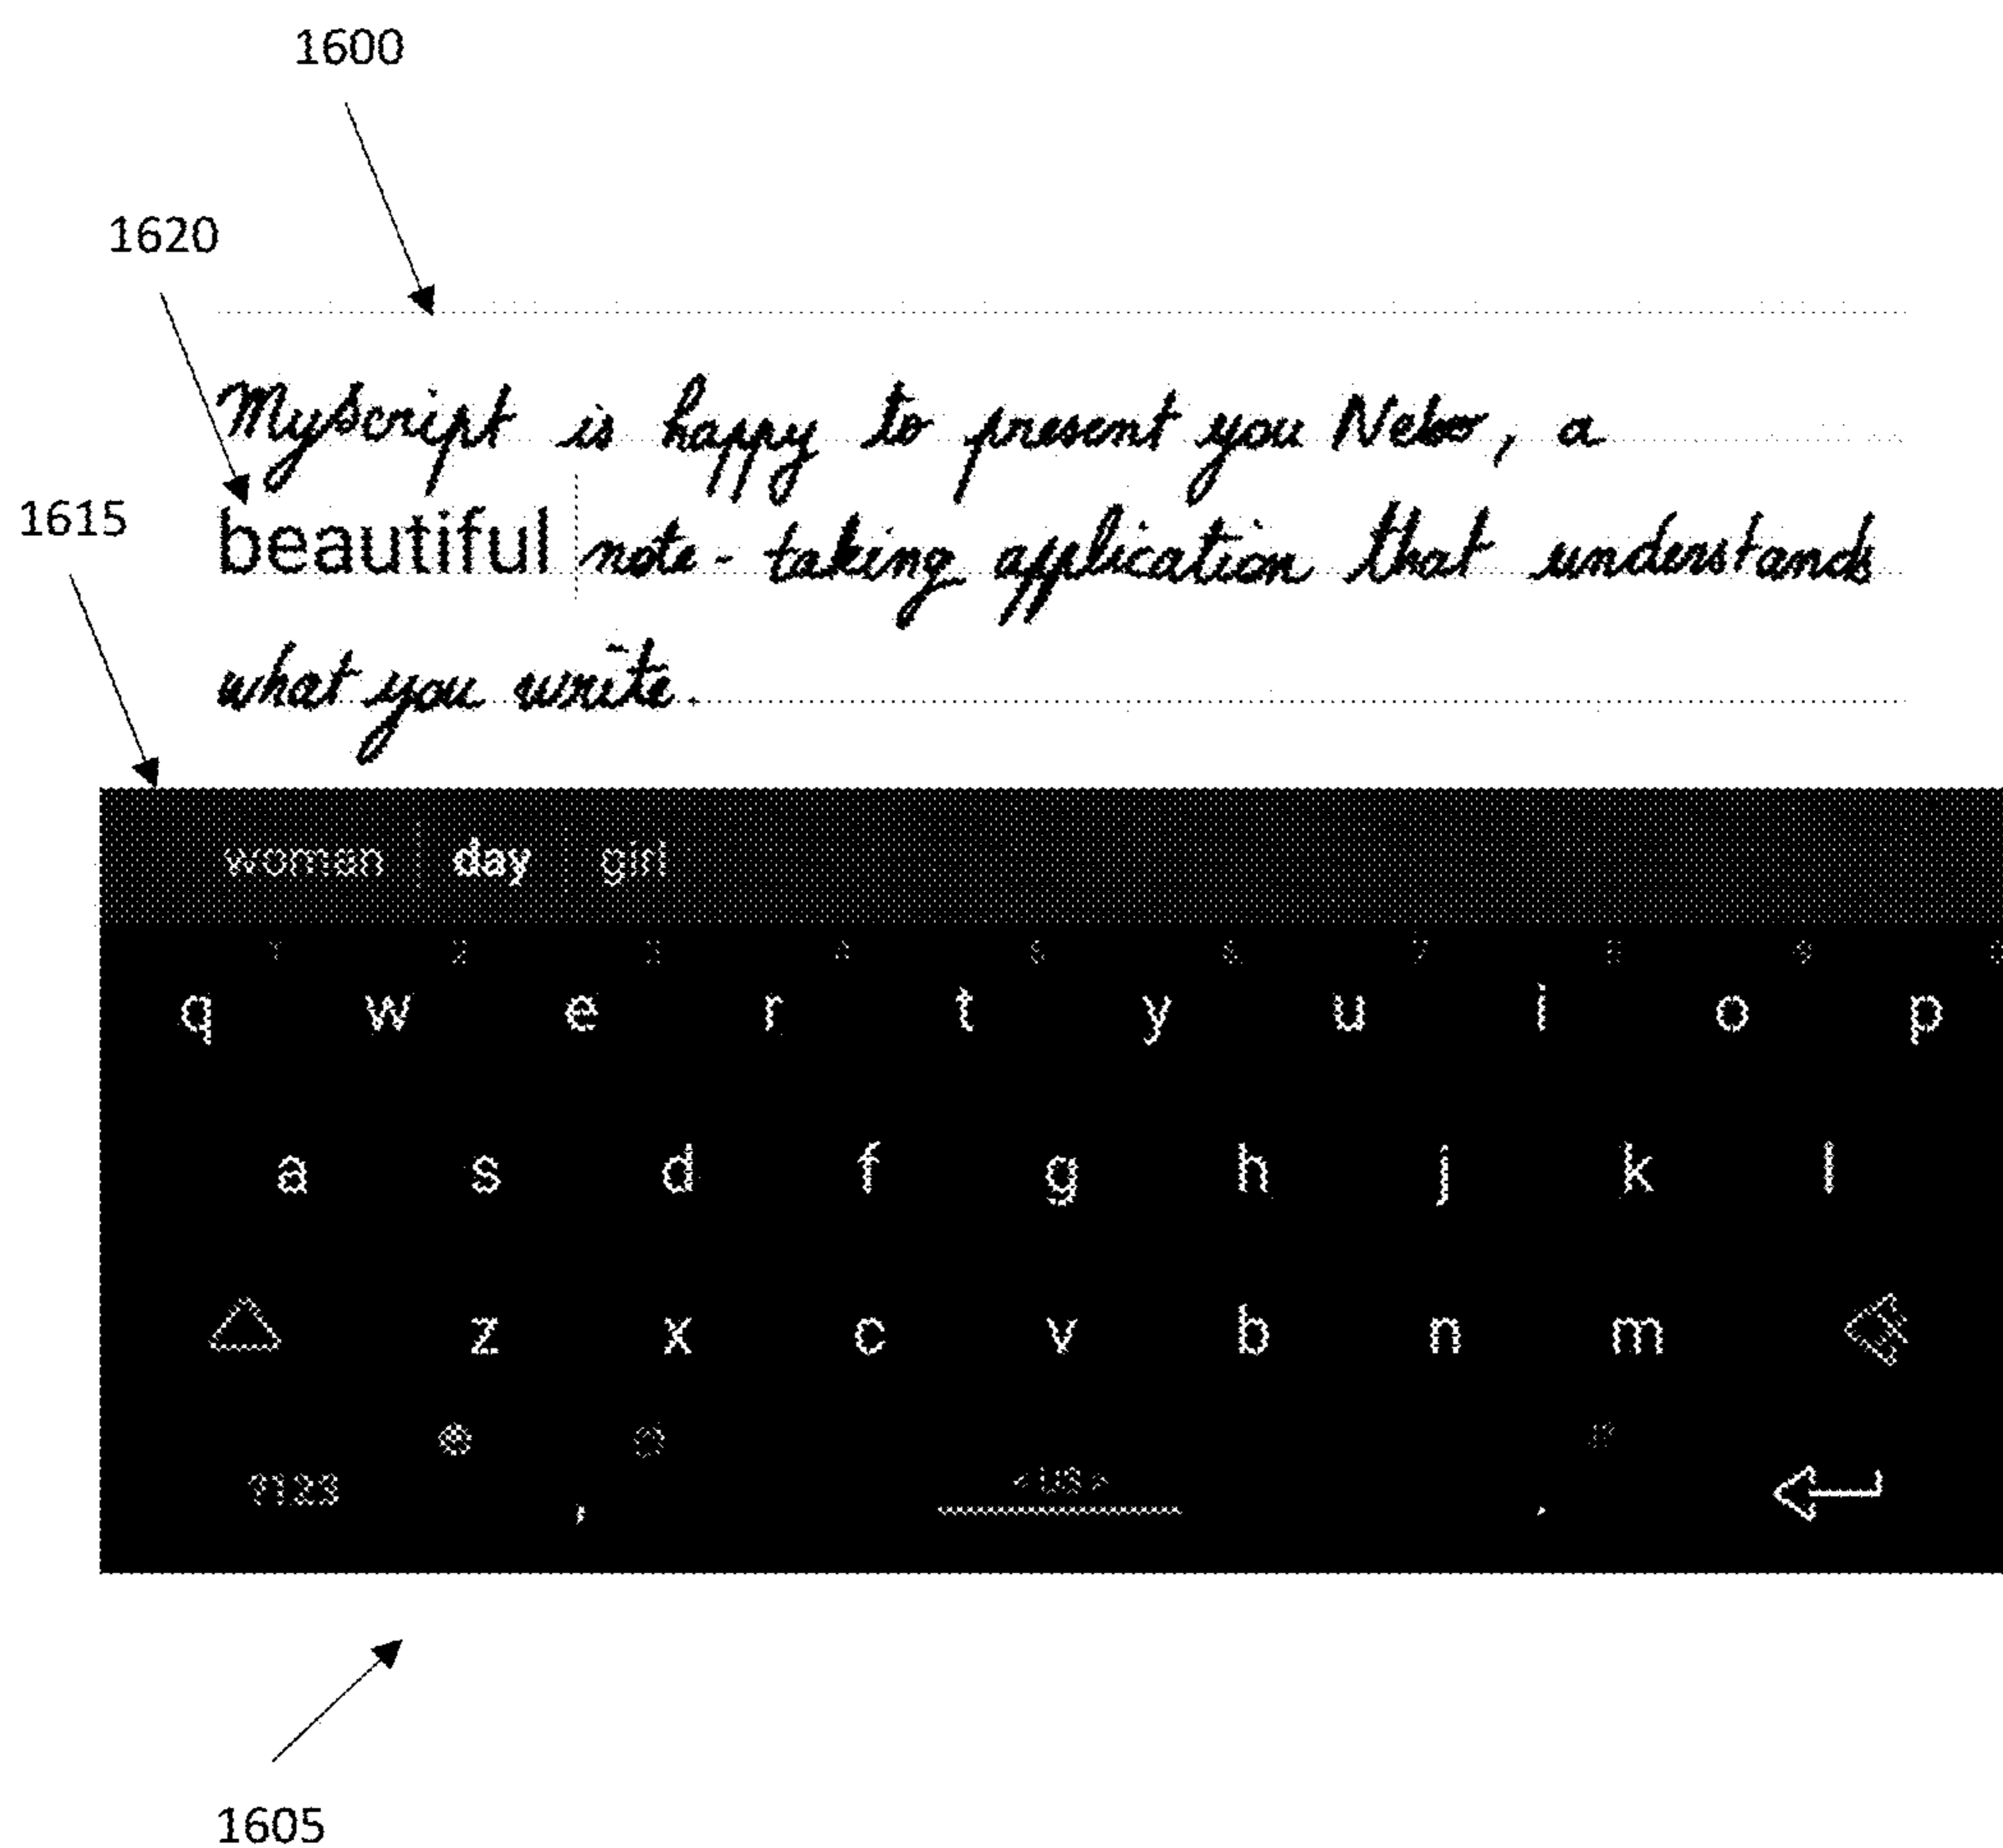 1600
1620
1615
MyScript is happy to present you Nebo, a
beautiful note-taking application that understands
what you write.
woman day girl
1 2 3 4 5 6 7 8 9
q w e r t y u i o p
a s d f g h j k l
z x c v b n m
?123 , <US> .
1605